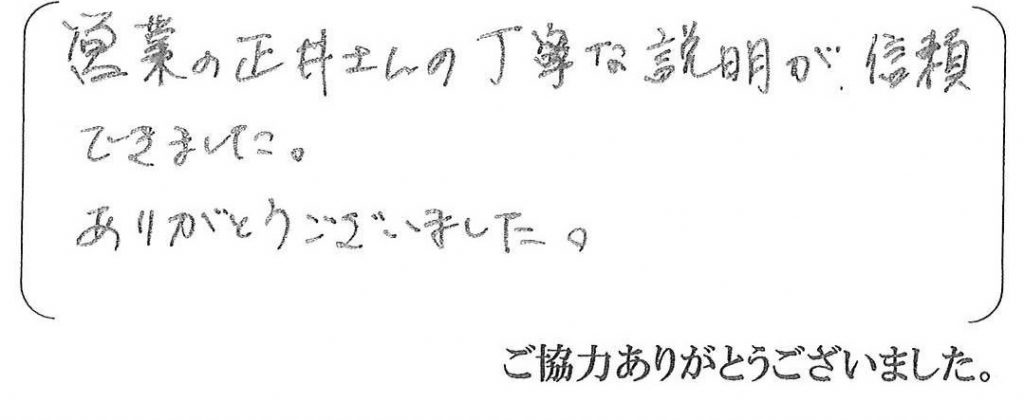 営業の正井さんの丁寧な説明が信頼
できました。
ありがとうございました。
ご協力ありがとうございました。